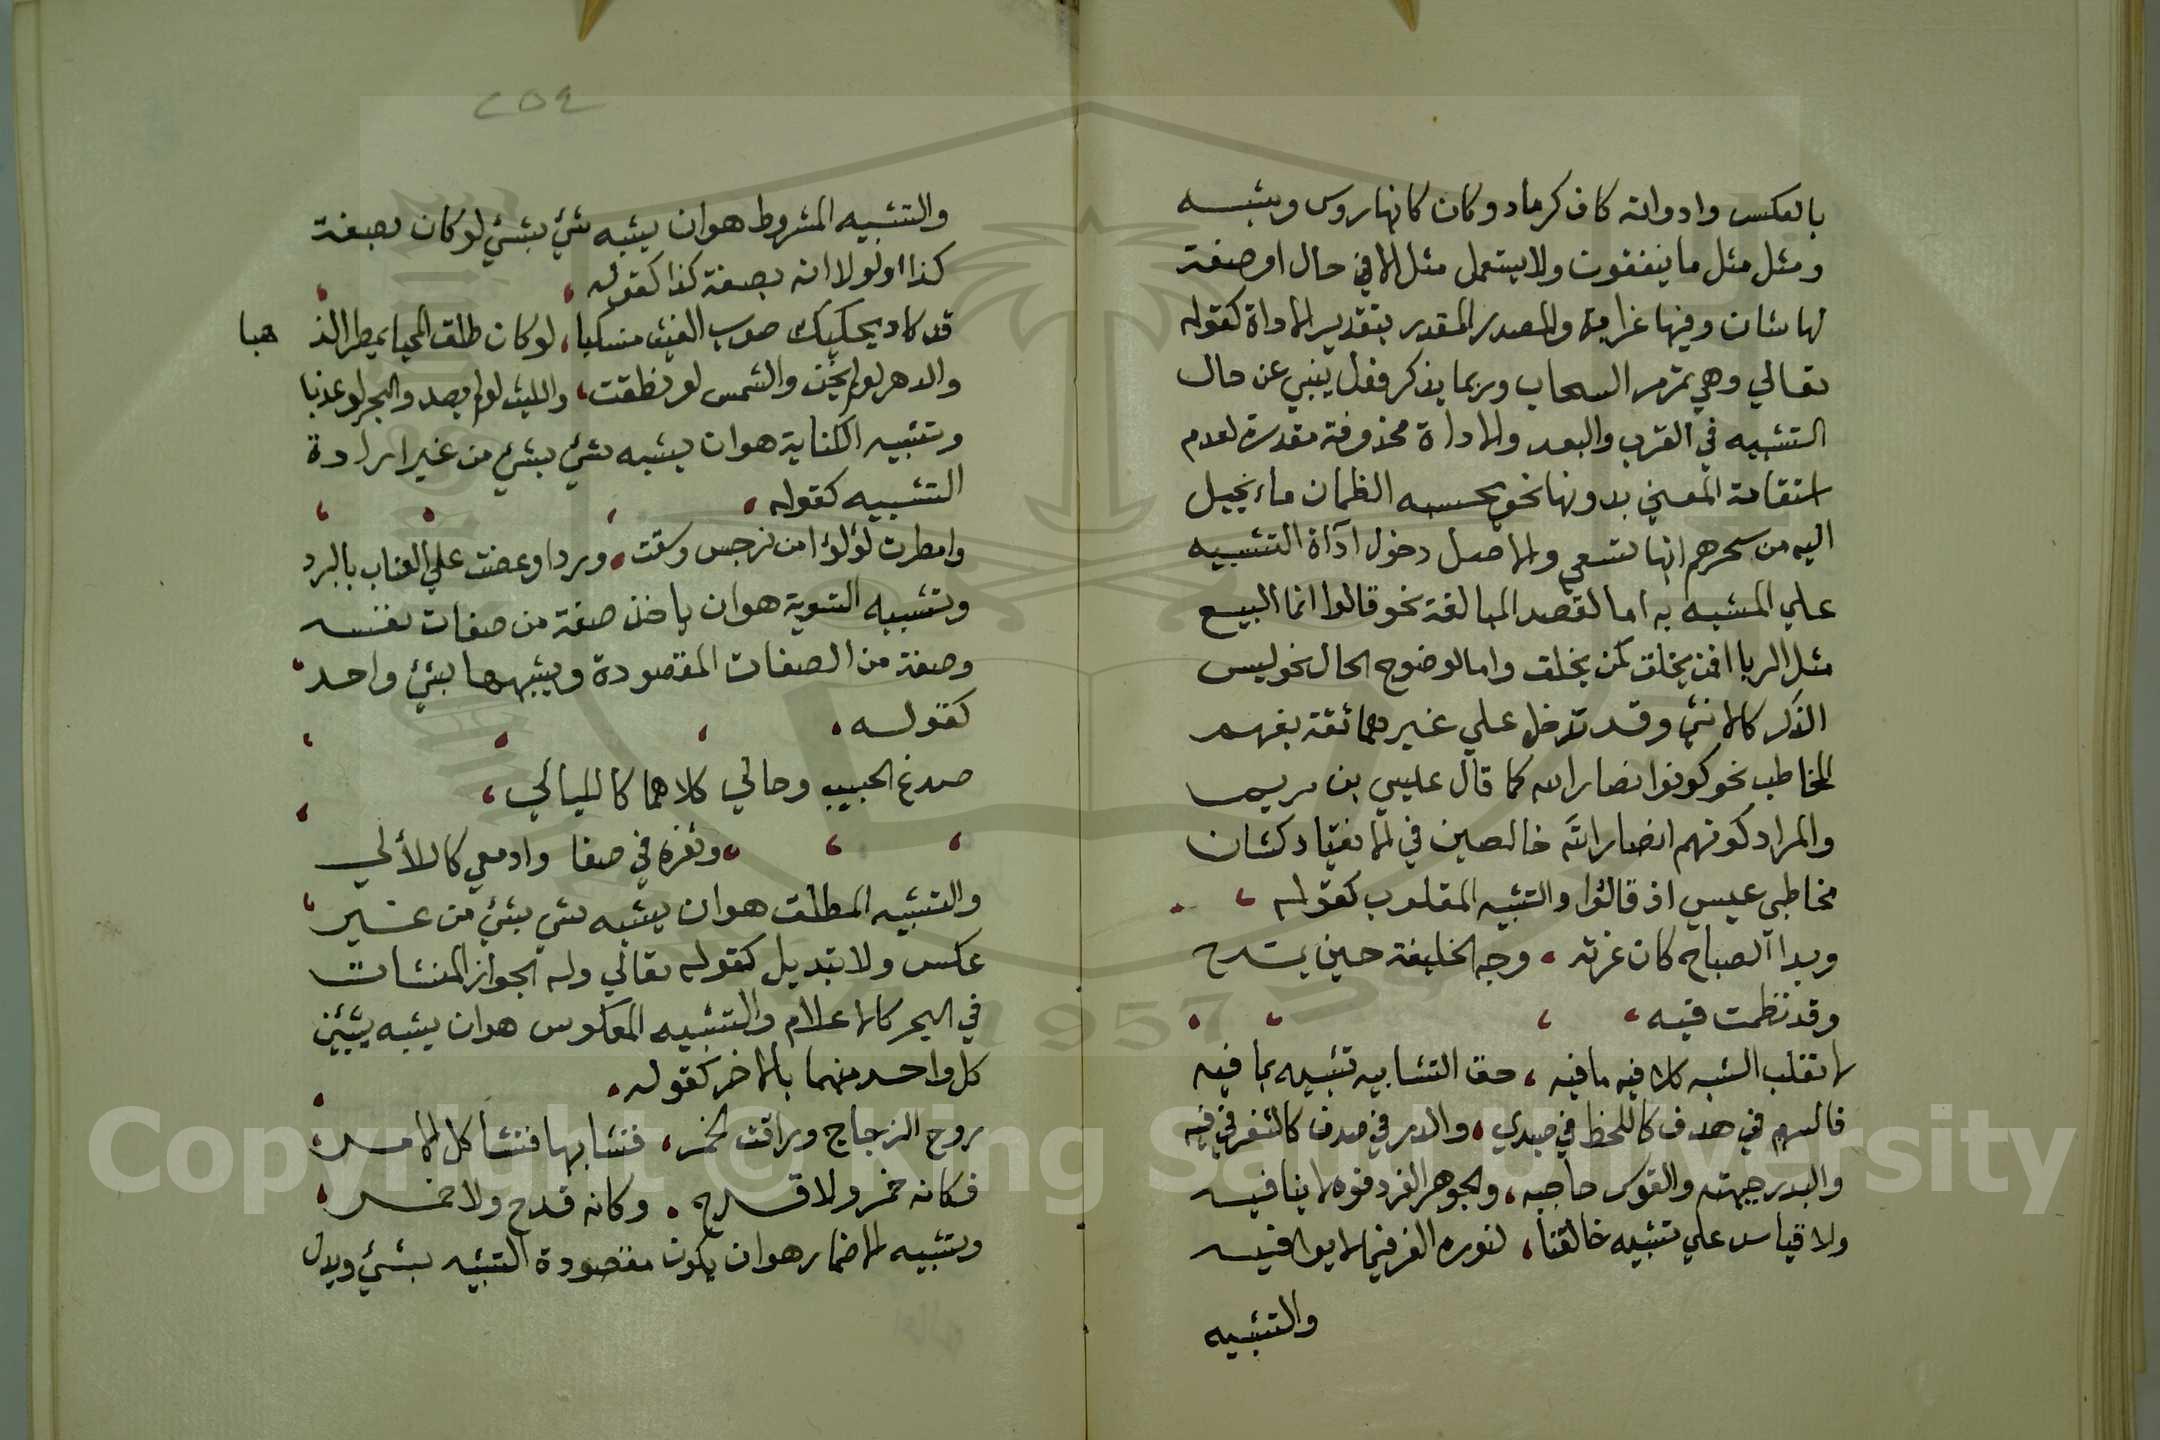 بالعكس وادواته كاف كرماد وكان كانها روس وشبه
ومثل مثل ما ينفقون ولا يستعمل مثل الا في حال او صفة
لها شان وفيها غرابة والمصدر المقدر بتقدير الاداة كقوله
تعالي وهي تمر مر السحاب وربما يذكر فعل ينبي عن حال
التشبيه في القرب والبعد والاداة محذوفة مقدرة لعدم
استقامة المعني بدونها نحو يحسبه الظمان ماء يخيل
اليه من سحرهم انها تسعي والاصل دخول آداة التشبيه
علي المشبه به اما لقصد المبالغة نحو قالوا انما البيع
مثل الربا افمن يخلق كمن يخلق واما لوضوح الحال نحو ليس
الذكر كالانثي وقد تدخل علي غيرهما ثقة بفهم
المخاطب نحو كونوا انصار الله كما قال عيسي بن مريم
والمراد كونهم انصار الله خالصين في الانقياد كشان
مخاطبي عيسي اذ قالوا والتشبيه المقلوب كقوله
وبدا الصباح كان غرته وجه الخليفة حين يمتدح
وقد نظمت فيه
لا تقلب الشبه كلا فيه ما فيه حق التشابيه تشبيه بما فيه
فالسهم في هدف كاللحظ في صدي والدر في صدف كالثغر في فيه
والبدر جبهته والقوس حاجبه والجوهر الفرد فوه لا ينافيه
ولا قياس علي تشبيه خالقنا لنوره الغر فيما لا يوافيه
والتشبيه
٢٥٤
والتشبيه المشروط هو ان يشبه شئ بشئ لو كان بصفة
كذا اولولا انه بصفة كذا كقوله
قد كاد يحكيك صوب الغيث منسكبا لو كان طلق المحيا يمطر الذ هبا
والدهر لو لم يخن والشمس لو نطقت والليث لو لم يصد والبحر لو عذبا
وتشبيه الكناية هو ان يشبه شئ بشئ من غير ارادة
التشبيه كقوله
وامطرت لؤلؤا من نرجس وسقت وردا وعضت علي العناب بالبرد
وتشبيه التسوية هو ان ياخذ صفة من صفات نفسه
وصفة من الصفات المقصودة ويشبههما بشئ واحد
كقوله
صدغ الحبيب وحالي كلاهما كالليالي
وثغره في صفا وادمعي كاللألي
والتشبيه المطلق هو ان يشبه شئ بشئ من غير
عكس ولا تبديل كقوله تعالي وله الجوار المنشات
في البحر كالاعلام والتشبيه المعكوس هو ان يشبه شيئين
كل واحد منهما بالاخر كقوله
روح الزجاج وراقت الخمر فتشابها فتشاكل الامر
فكانه خمر ولا قدح وكانه قدح ولا خمر
وتشبيه الاضمار هو ان يكون مقصودة التشبيه بشئ ويدل
Copyright © King Saud University
1957